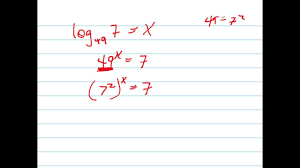 log₄₉ 7 = x
49 = 7²
49ˣ = 7
(7²)ˣ = 7